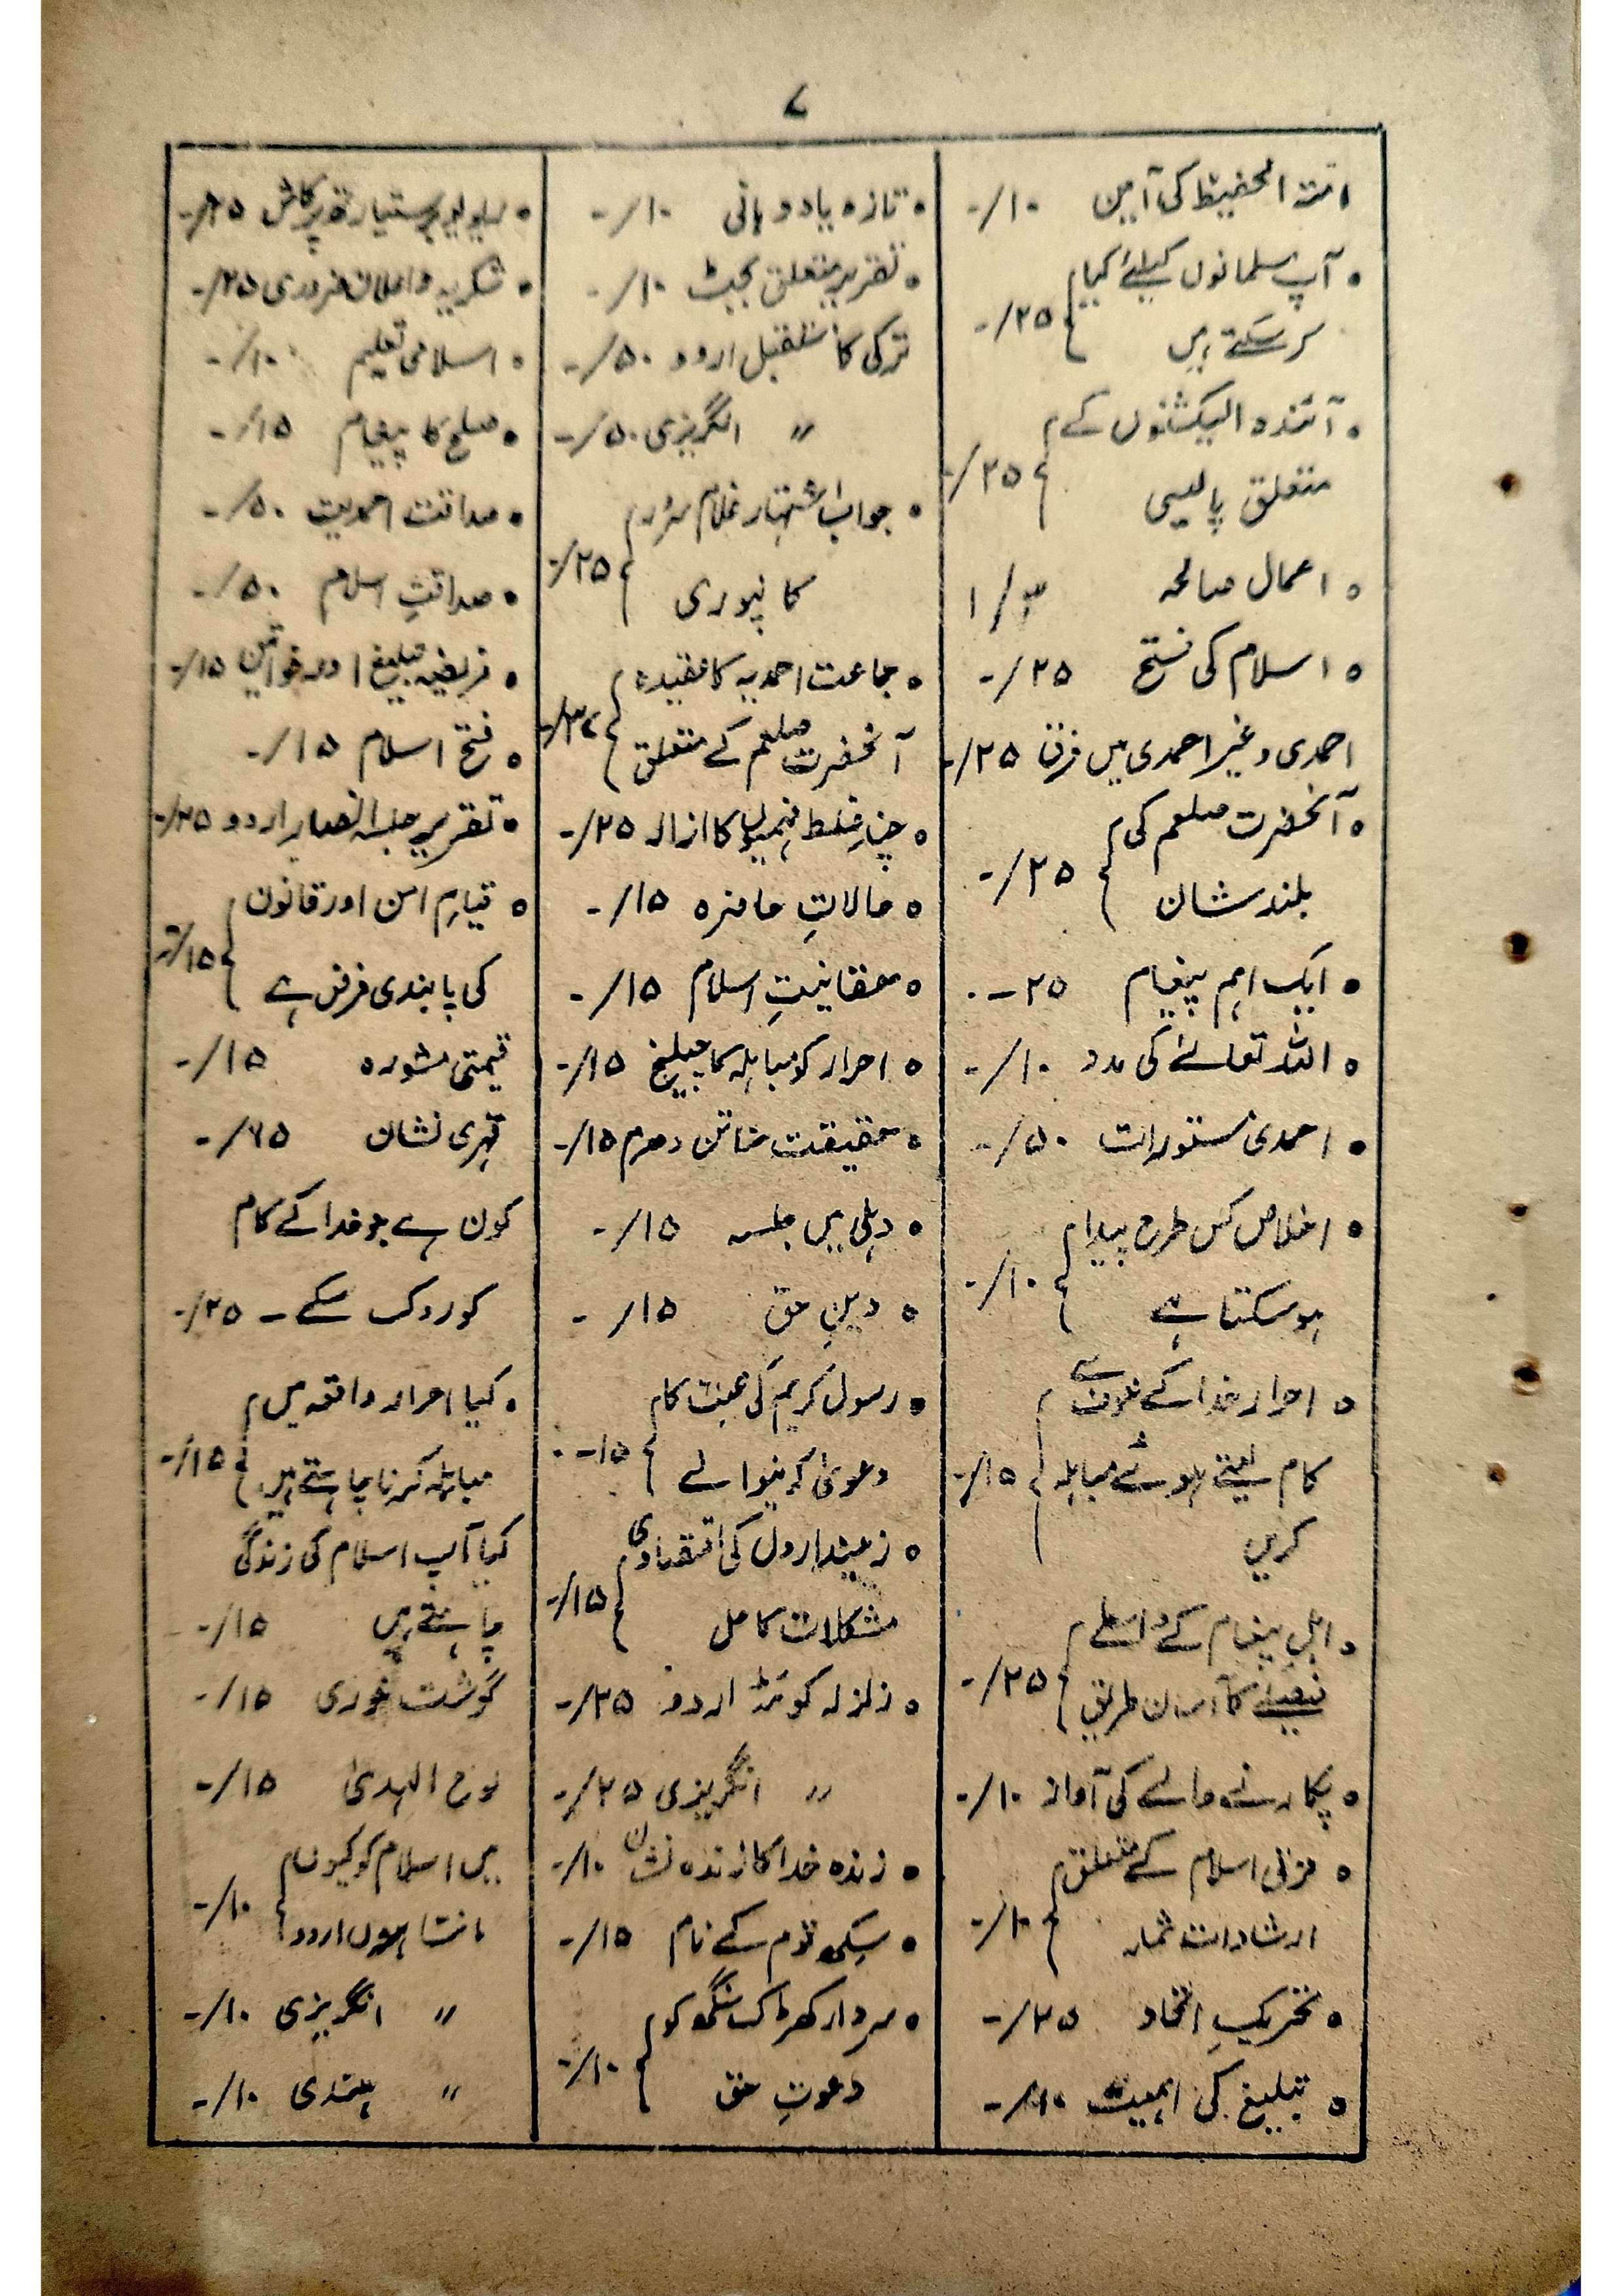 ۷
امتہ الحفیظ کی آمین ۱۰/-
آپ مسلمانوں کیلئے کیا
کر سکتے ہیں ۲۵/-
آئندہ الیکشنوں کے
متعلق پالیسی ۲۵/-
اعمال صالحہ ۱/
اسلام کی فتح ۲۵/-
احمدی وغیر احمدی میں فرق ۲۵/-
آنحضرت صلعم کی
بلند شان ۲۵/-
ایک اہم پیغام ۲۵-۰
اللہ تعالےٰ کی مدد ۱۰/-
احمدی مستورات ۵۰/-
اخلاص کس طرح پیدا
ہو سکتا ہے ۱۰/-
احرار خدا کے خوف سے
کام لیتے ہوئے مباہلہ ۱۵/-
کریں
اہل پیغام کے واسطے
فیصلے کا آسان طریق ۲۵/-
پکارنے والے کی آواز ۱۰/-
ترقی اسلام کے متعلق
ارشادات ۱۰/-
تحریکِ اتحاد ۲۵/-
تبلیغ کی اہمیت ۱۰/-
تازہ یاد دہانی ۱۰/-
تقریر متعلق بجٹ ۱۰/-
ترکی کا مستقبل اردو ۵۰/-
〃 انگریزی ۵۰/-
جواب اشتہار غلام سرور
کانپوری ۲۵/-
جماعت احمدیہ کا عقیدہ
آنحضرت صلعم کے متعلق ۳۷/-
چند غلط فہمیوں کا ازالہ ۲۵/-
حالاتِ حاضرہ ۱۵/-
حقانیتِ اسلام ۱۵/-
احرار کو مباہلہ کا چیلنج ۱۵/-
حقیقت سناتن دھرم ۱۵/-
دہلی میں جلسہ ۱۵/-
دینِ حق ۱۵/-
رسول کریم کی محبت کا
دعویٰ کرنیوالے ۱۵-۰
زمینداروں کی اقتصادی
مشکلات کا حل ۱۵/-
زلزلہ کوئٹہ اردو ۲۵/-
〃 انگریزی ۲۵/-
زندہ خدا کا زندہ نشان ۱۰/-
سکھ قوم کے نام ۱۵/-
سردار کھڑک سنگھ کو
دعوتِ حق ۱۰/-
ریویو بر ستیارتھ پرکاش ۲۵/-
شکریہ و اعلان ضروری ۲۵/-
اسلامی تعلیم ۱۰/-
صلح کا پیغام ۱۵/-
صداقت احمدیت ۵۰/-
صداقتِ اسلام ۵۰/-
فریضہ تبلیغ اور خواتین ۱۵/-
فتح اسلام ۱۵/-
تقریر جلسہ انصار اردو ۲۵/-
قیامِ امن اور قانون
کی پابندی فرض ہے ۱۵/-
قیمتی مشورہ ۱۵/-
قہری نشان ۷۵/-
کون ہے جو خدا کے کام
کو روک سکے - ۲۵/-
کیا احرار واقعہ میں
مباہلہ کرنا چاہتے ہیں ۱۵/-
کیا آپ اسلام کی زندگی
چاہتے ہیں ۱۵/-
گوشت خوری ۱۵/-
لوح الہدیٰ ۱۵/-
میں اسلام کو کیوں
مانتا ہوں اردو ۱۰/-
〃 انگریزی ۱۰/-
〃 ہندی ۱۰/-